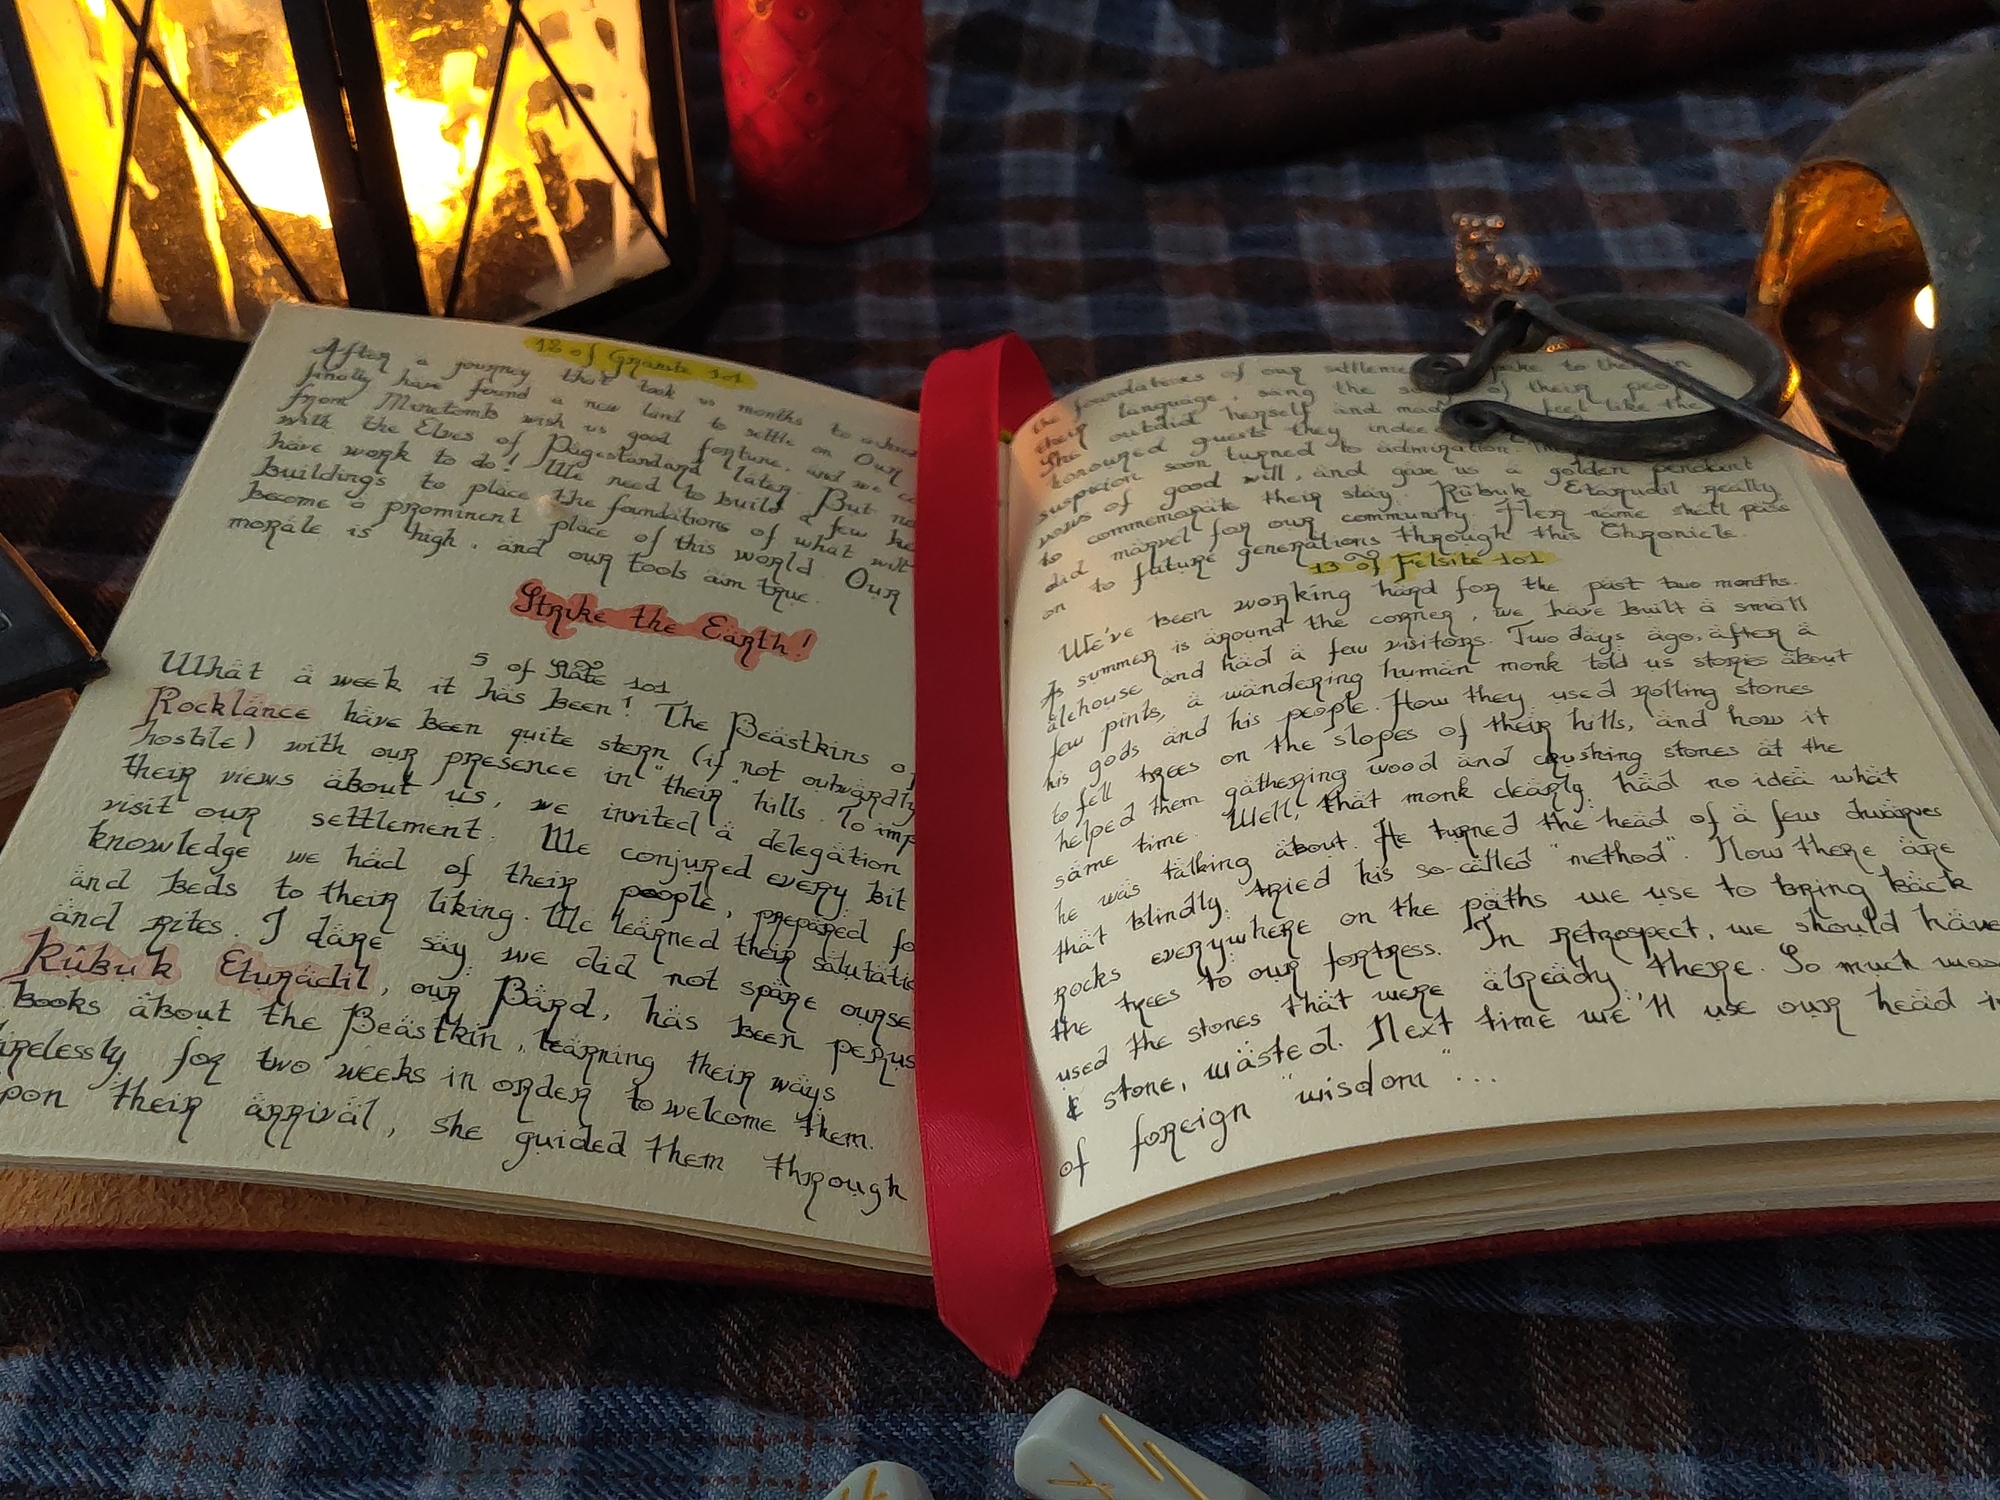 12 of Granite 101
After a journey that took us months to achieve
finally have found a new land to settle on Our
from Minetomb wish us good fortune, and we
with the Elves of Pagestandard later. But
have work to do! We need to build a few
buildings to place the foundations of what
become a prominent place of this world Our
morale is high, and our tools aim true.
Strike the Earth!
5 of Slate 101
What a week it has been! The Beastkins
Rocklance have been quite stern (if not outwardly
hostile) with our presence in "their" hills. To
their views about us, we invited a delegation
visit our settlement. We conjured every bit
knowledge we had of their people, prepared
and beds to their liking. We learned their
and rites. I dare say we did not spare
Rûbuk Eturadil, our Bard, has been
books about the Beastkin, learning their ways
for two weeks in order to welcome them.
their arrival, she guided them through
the foundations of our
their language, sang the of their
She outdid herself and feel like the
honoured guests they
suspicion soon turned to admiration.
vows of good will, and gave us a golden pendant
to commemorate their stay. Rûbuk Eturadil really
did marvel for our community. Her name shall pass
on to future generations through this Chronicle.
13 of Felsite 101
We've been working hard for the past two months.
As summer is around the corner, we have built a small
alehouse and had a few visitors. Two days ago, after a
few pints, a wandering human monk told us stories about
his gods and his people. How they used rolling stones
to fell trees on the slopes of their hills, and how it
helped them gathering wood and crushing stones at the
same time. Well, that monk clearly had no idea what
he was talking about. He turned the head of a few dwarves
that blindly tried his so-called "method". Now there are
rocks everywhere on the paths we use to bring back
the trees to our fortress. In retrospect, we should have
used the stones that were already there. So much
& stone, wasted. Next time we'll use our head
of foreign "wisdom"...